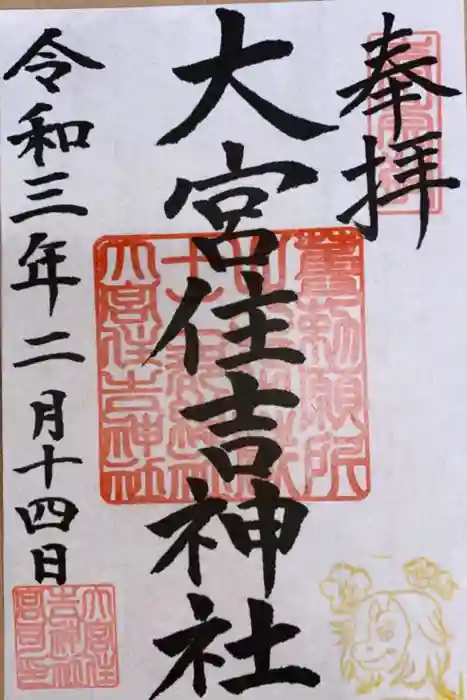 奉拝
大宮住吉神社
令和三年二月十四日
大宮住吉神社
大宮住
吉神社
宮司之印